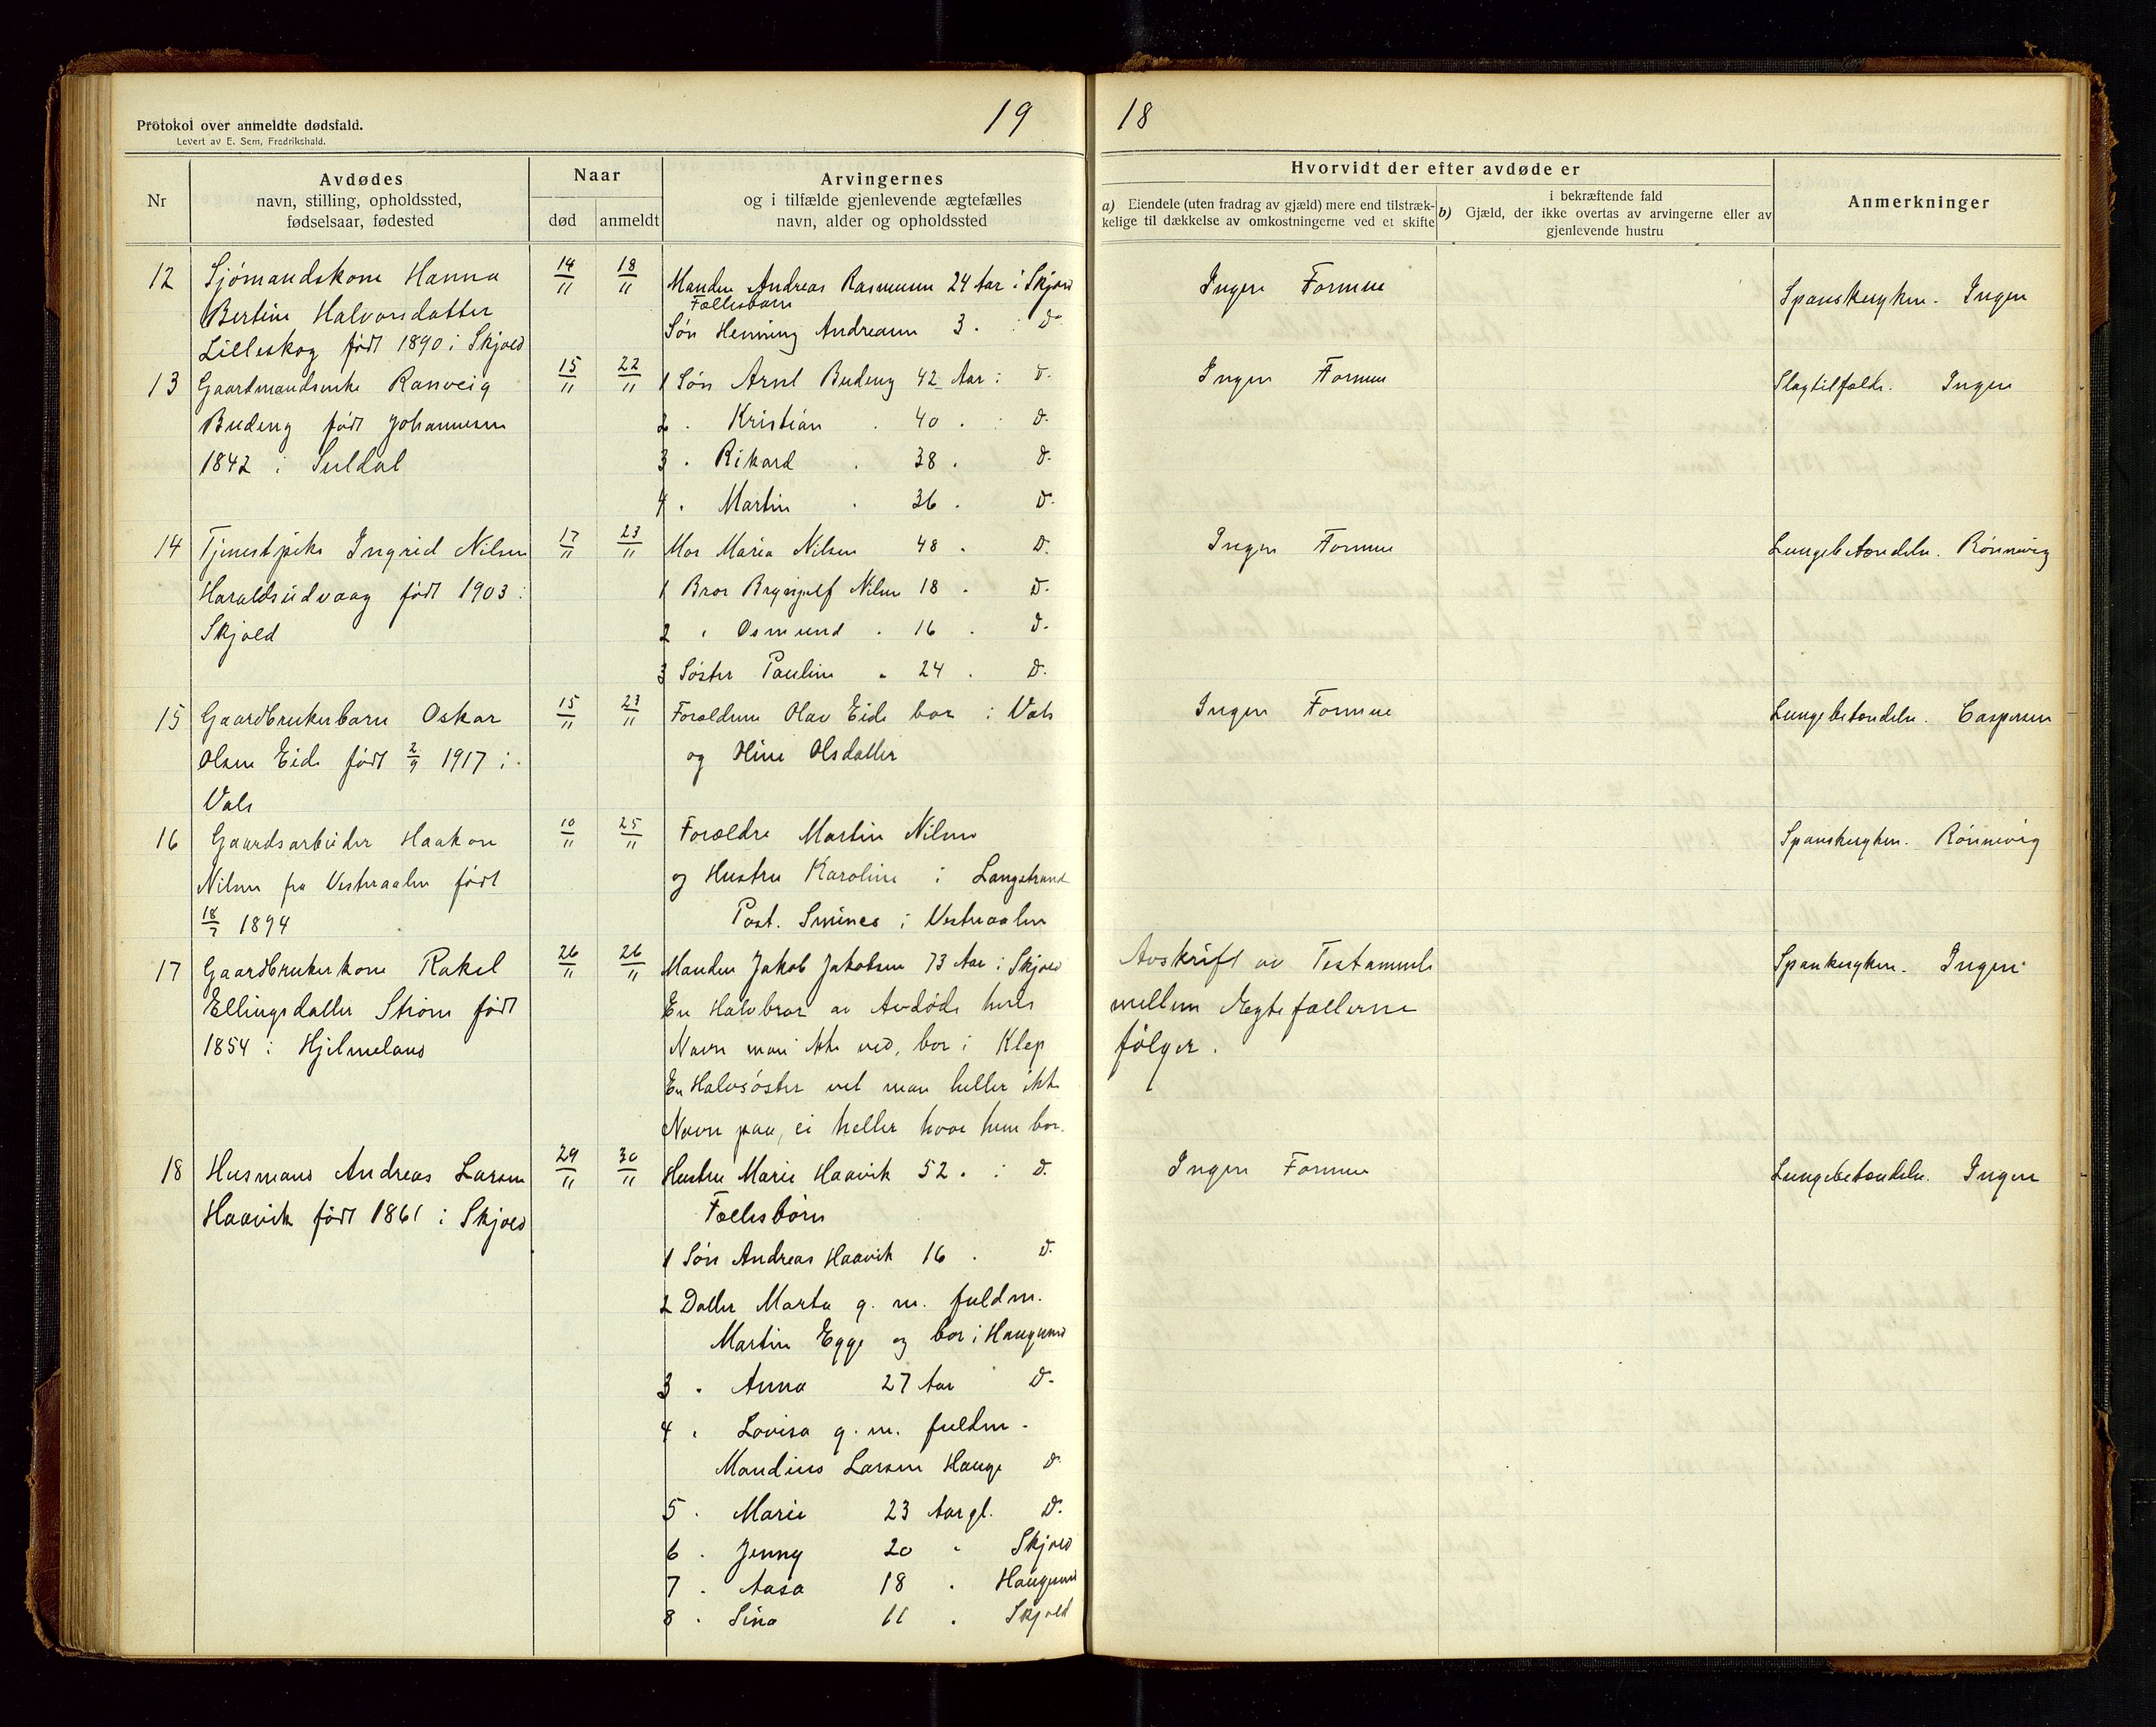 Protokol over anmeldte dødsfald.
Levert av E. Sem, Fredrikshald.
19
18
Nr
Avdødes
navn, stilling, opholdssted,
fødselsaar, fødested
Naar
død
anmeldt
Arvingernes
og i tilfælde gjenlevende ægtefælles
navn, alder og opholdssted
Hvorvidt der efter avdøde er
a) Eiendele (uten fradrag av gjæld) mere end tilstræk-
kelige til dækkelse av omkostningerne ved et skifte
i bekræftende fald
b) Gjæld, der ikke overtas av arvingerne eller av
gjenlevende hustru
Anmerkninger
12 Sjömandskone Hanna
Bertine Halvorsdatter
Lilleskog født 1890 i Skjold
14/11 18/11
Manden Andreas Rasmussen 24 Aar i Skjold
Fællesbarn
Søn Henning Andreasen 3 . : D.
Ingen Formue
Spanskesyken. Ingen
13 Gaardmandsenke Ranveig
Budeng født Johannesen
1842 i Suldal
15/11 22/11
1 Søn Arnt Budeng 42 Aar i D.
2 . Kristian . 40 . : D.
3 . Rikard . 38 . D.
4 . Martin . 36 . D.
Ingen Formue
Slagtilfælde. Ingen
14 Tjenestpike Ingrid Nilsen
Haraldseidvaag født 1903 i
Skjold
17/11 23/11
Mor Maria Nilsen 48 . D.
1 Bror Brynjulf Nilsen 18 . D.
2 . Osmund . 16 . D.
3 Søster Pauline . 24 . D.
Ingen Formue
Lungebetændelse. Rönnevig
15 Gaardbrukerbarn Oskar
Olsen Eide født 2/9 1917 i
Vats
15/11 23/11
Forældrene Olav Eide bor i Vats
og Stine Olsdatter
Ingen Formue
Lungebetændelse. Caspersen
16 Gaardsarbeider Haakon
Nilsen fra Vesteraalen født
18/7 1894
10/11 25/11
Forældre Martin Nilsen
og Hustru Karoline i Langstrand
Post. Smines i Vesteraalen
Spanskesyken. Rönnevig
17 Gaardbrukerkone Rakel
Ellingsdatter Strøm født
1854 i Hjelmeland
26/11 26/11
Manden Jakob Jakobsen 73 Aar i Skjold
En Halvbror av Avdøde hvis
Navn man ikke ved, bor i Klep
En Halvsøster vet man heller ikke
Navn paa, ei heller hvor hun bor.
Avskrift av Testamente
mellem Ægtefællerne
følger.
Spanksyken. Ingen
18 Husmand Andreas Larsen
Haavik født 1861 i Skjold
29/11 30/11
Hustru Marie Haavik 52 . : D.
Fællesbörn
1 Søn Andreas Haavik 16 . D.
2 Datter Marta g. m. fuldm.
Martin Egge og bor i Haugesund
3 . Anna 27 Aar D.
4 . Lovisa g. m. fuldm.
Mandius Larsen Hauge D.
5 . Marie 23 Aar gl. D.
6 . Jenny 20 . Skjold
7 . Aasa 18 . Haugesund
8 . Sina 11 . Skjold
Ingen Formue
Lungebetændelse. Ingen